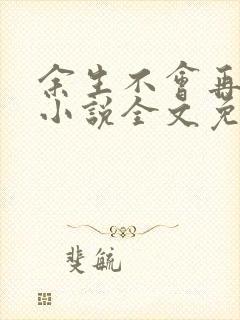 余生不會再
小說全文免
斐毓